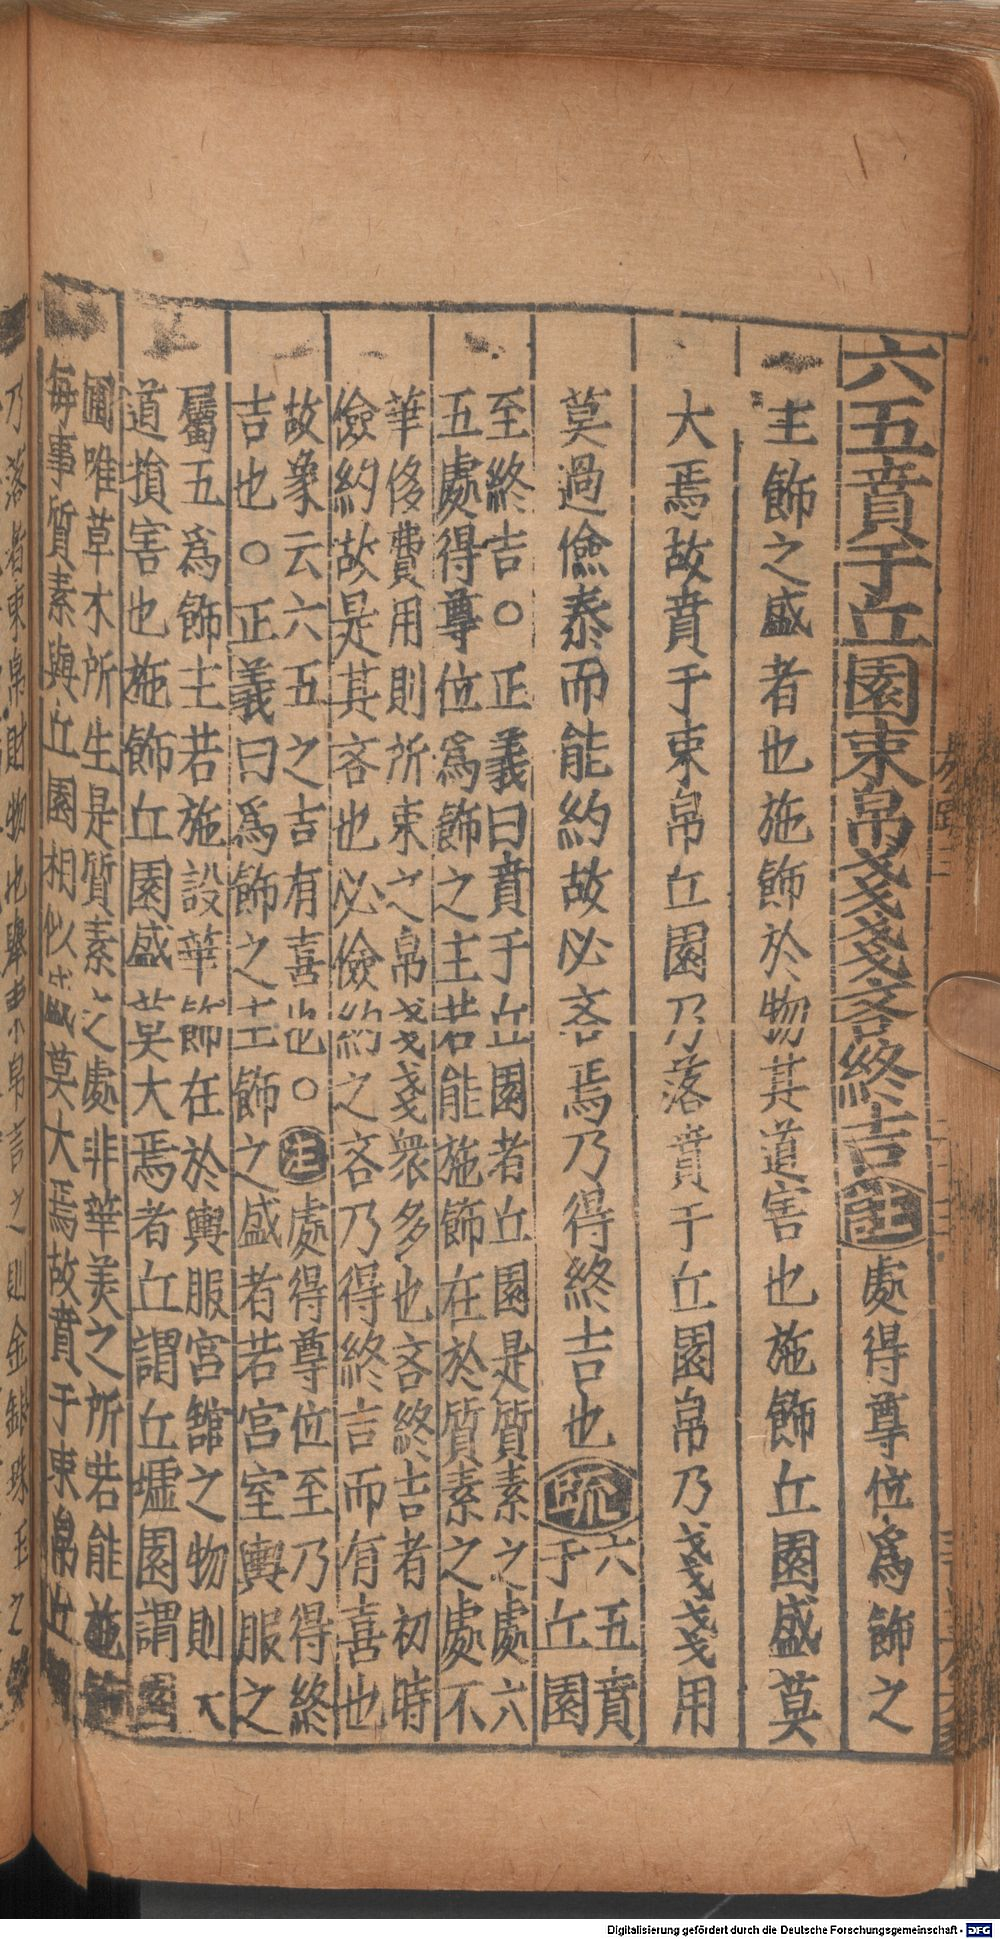 六五賁于丘園束帛戔戔吝終吉註處得尊位爲飾之
主飾之盛者也施飾於物其道害也施飾丘園盛莫
大焉故賁于束帛丘園乃落賁于丘園帛乃戔戔用
莫過儉泰而能約故必吝焉乃得終吉也疏六五賁
于丘園
至終吉○正義曰賁于丘園者丘園是質素之處六
五處得尊位爲飾之主若能施飾在於質素之處不
華侈費用則所束之帛戔戔衆多也吝終吉者初時
儉約故是其吝也必儉約之吝乃得終吉而有喜也
故象云六五之吉有喜也○注處得尊位至乃得終
吉也○正義曰爲飾之主飾之盛者若宮室輿服之
屬五爲飾主若施設華飾在於輿服宮舘之物則大
道損害也施飾丘園盛莫大焉者丘謂丘墟園謂園
圃唯草木所生是質素之處非華美之所若能施飾
每事質素與丘園相似盛莫大焉故賁于束帛丘
乃落者束帛財物也舉束帛言之則金銀珠玉之
Digitalisierung gefördert durch die Deutsche Forschungsgemeinschaft - DFG